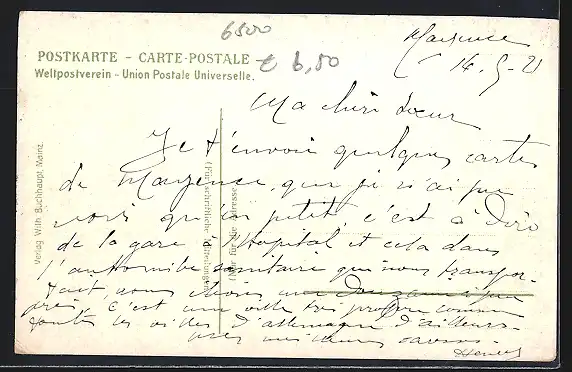 6500
€ 6,50
POSTKARTE – CARTE-POSTALE
Weltpostverein – Union Postale Universelle.
Mayence
14-5-21
Ma chère Sœur
Je t'envoie quelques cartes
de Mayence, que je n'ai pu
voir qu'un petit, c'est à dire
de la gare à l'hopital et cela dans
l'automobile sanitaire qui nous transpor-
tait, nous
c'est une ville très propre comme
toutes les villes d'allemagne d'ailleurs.
meilleurs
Verlag Wilh. Buchhaupt, Mainz.
(Für schriftliche Mitteilungen)
(Nur für die Adresse)